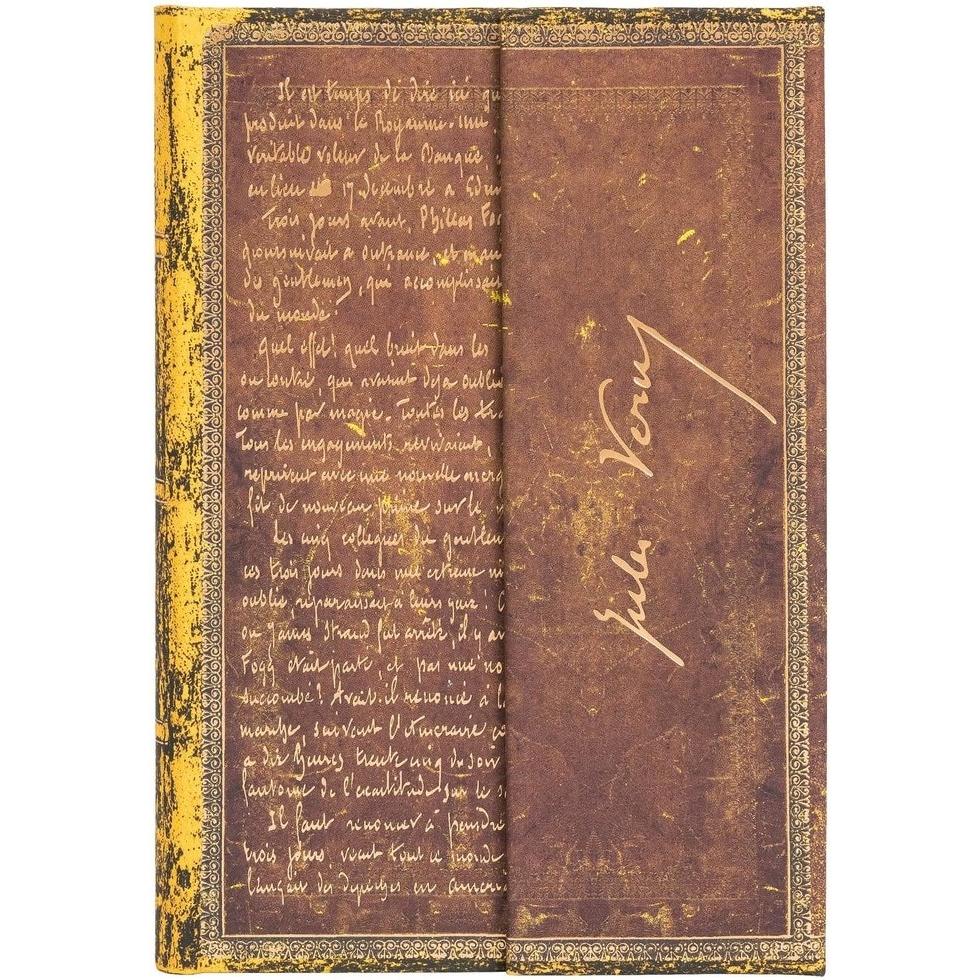 Il est temps de dire ici qu
produit dans le Royaume-Uni
véritable voleur de la Banque
eu lieu le 17 décembre a Edim
Trois jours avant, Phileas Fo
poursuivait a outrance, et
de gentleman, qui accomplissait
du monde.
Quel effet! quel bruit dans les
ou contre, qui avaient déja oublié
comme par magie. Toutes les tra
Tous les engagements revivaient,
reprirent avec une nouvelle énerg
fit de nouveau prime sur le
Les cinq collegues du gentlem
ces trois jours dans une
oublié, reparaissait a leurs yeux! O
ou James Strand fut arrêté, il y av
Fogg etait parti, et pas une no
succombé? Avait-il renoncé à l
marche, suivant l'itineraire co
a dix heures trente cinq du soir
fantome de l'exactitude, sur le s
Il faut renoncer à peindre
trois jours, vecut tout ce monde
lançait des depeches en Ameri
Jules Verne